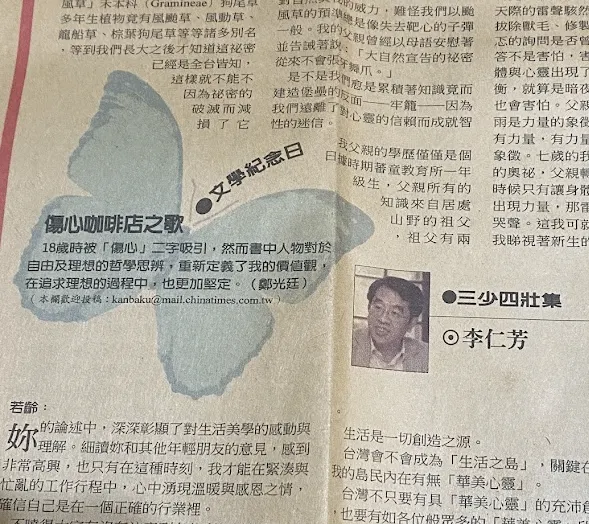 風草」禾本科(Gramineae)狗尾草
多年生植物竟有風颱草、風動草、
龍船草、棕葉狗尾草等等諸多別名
,等到我們長大之後才知道這祕密
已經是全台皆知,
這樣就不能不
因為祕密的
破滅而減
損了它
的威力,難怪我們以颱
風草的預準總是像失去靶心的子彈
一般。我的父親曾經以母語安慰著
並告誡著說:「大自然宣告的祕密
從來不會張牙舞爪。」
是不是我們愈是累積著知識竟而
建造堡壘的反面——牢籠——因為
我們遠離了對心靈的信賴而成就智
性的迷信。
我父親的學歷僅僅是個
日據時期蕃童教育所一年
級生,父親所有的
知識來自居處
山野的祖父
,祖父有兩
天際的雷聲駭然
拔除獸毛、修製
忘的詢問是否曾
答不是害怕,害
體與心靈出現了
衡,就算是暗夜
也會害怕。父親
雨是力量的象徵
有力量,有力量
象徵。七歲的我
的奧祕,父親轉
時候只有讓身體
出現力量,那雷
哭聲。這我可就
我睇視著新生的
●文學紀念日
傷心咖啡店之歌
18歲時被「傷心」二字吸引,然而書中人物對於
自由及理想的哲學思辨,重新定義了我的價值觀,
在追求理想的過程中,也更加堅定。(鄭光廷)
(本欄歡迎投稿:kanbaku@mail.chinatimes.com.tw)
●三少四壯集
⊙李仁芳
若齡:
妳的論述中,深深彰顯了對生活美學的感動與
理解。細讀妳和其他年輕朋友的意見,感到
非常高興,也只有在這種時刻,我才能在緊湊與
忙亂的工作行程中,心中湧現溫暖與感恩之情,
確信自己是在一個正確的行業裡。
。
生活是一切創造之源。
台灣會不會成為「生活之島」,關鍵在
我的島民內在有無「華美心靈」。
台灣不只要有具「華美心靈」的充沛創
,也要有如各位般眾多的「華美心靈」